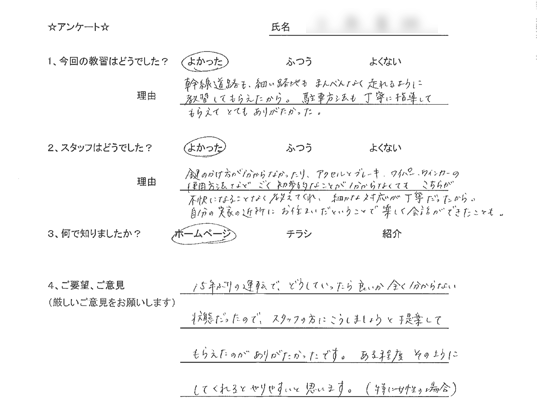 ☆アンケート☆ 氏名
1、今回の教習はどうでした? よかった ふつう よくない
理由 幹線道路も、細い路地も まんべんなく走れるように
教習してもらえたから。 駐車方法も丁寧に指導して
もらえて とてもありがたかった。
2、スタッフはどうでした? よかった ふつう よくない
鍵のかけ方が分からなかったり、アクセルとブレーキ、ワイパー、ウィンカーの
理由 使用方法など ごく初歩的なことが分からなくても こちらが
不快になることなく教えてくれ、細かな対応が丁寧だったから。
自分の実家の近所に お住まいだということで楽しく会話ができたことも。
3、何で知りましたか? ホームページ チラシ 紹介
4、ご要望、ご意見 15年ぶりの運転で、どうしていったら良いか全く分からない
(厳しいご意見をお願いします)
状態だったので、スタッフの方にこうしましょうと提案して
もらえたのがありがたかったです。 ある程度 そのように
してくれるとやりやすいと思います。(特に女性の場合)